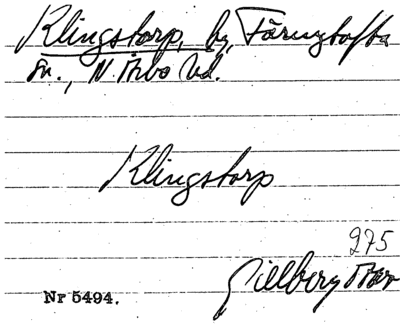 Klingstorp, by, Färingtofta
Sn., N. Åsbo Hd.
Klingstorp
275
Gillberg
Nr 5494.